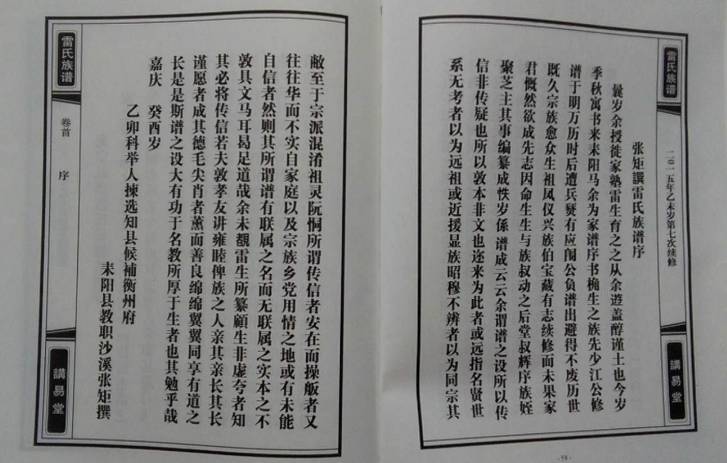 雷氏族谱
二〇一五年乙未岁第七次续修
講易堂
张矩譔雷氏族谱序
曩岁余授徒家塾雷生育之之从余遊蓋醇谨土也今岁
季秋寓书来耒阳马余为家谱序书桷生之族先少江公修
谱于明万历时后遭兵燹有应阁公负谱出避得不废历世
既久宗族愈众生祖凤仪兴族伯宝藏有志续修而未果家
君慨然欲成先志因命生生与族叔动之后堂叔辉序族姪
聚芝主其事编纂成帙岁係谱成云云余谓谱之设所以传
信非传疑也所以敦本非文也迩来为此者或远指名贤世
系无考者以为远祖或近援显族昭穆不辨者以为同宗其
-14-
雷氏族谱
卷首
序
講易堂
敝至于宗派混淆祖灵阮恫所谓传信者安在而操觚者又
往往华而不实自家庭以及宗族乡党用情之地或有未能
自信者然则其所谓谱有联属之名而无联属之实本之不
敦具文马耳曷足道哉余未覯雷生所纂顧生非虚夸者知
其必将传信若夫敦孝友讲雍睦俾族之人亲其亲长其长
谨愿者成其德毛尖肖者薰而善良绵绵翼翼同享有道之
长是是斯谱之设大有功于名教所厚于生者也其勉乎哉
嘉庆 癸酉岁
乙卯科举人揀选知县候補衡州府
耒阳县教职沙溪张矩撰